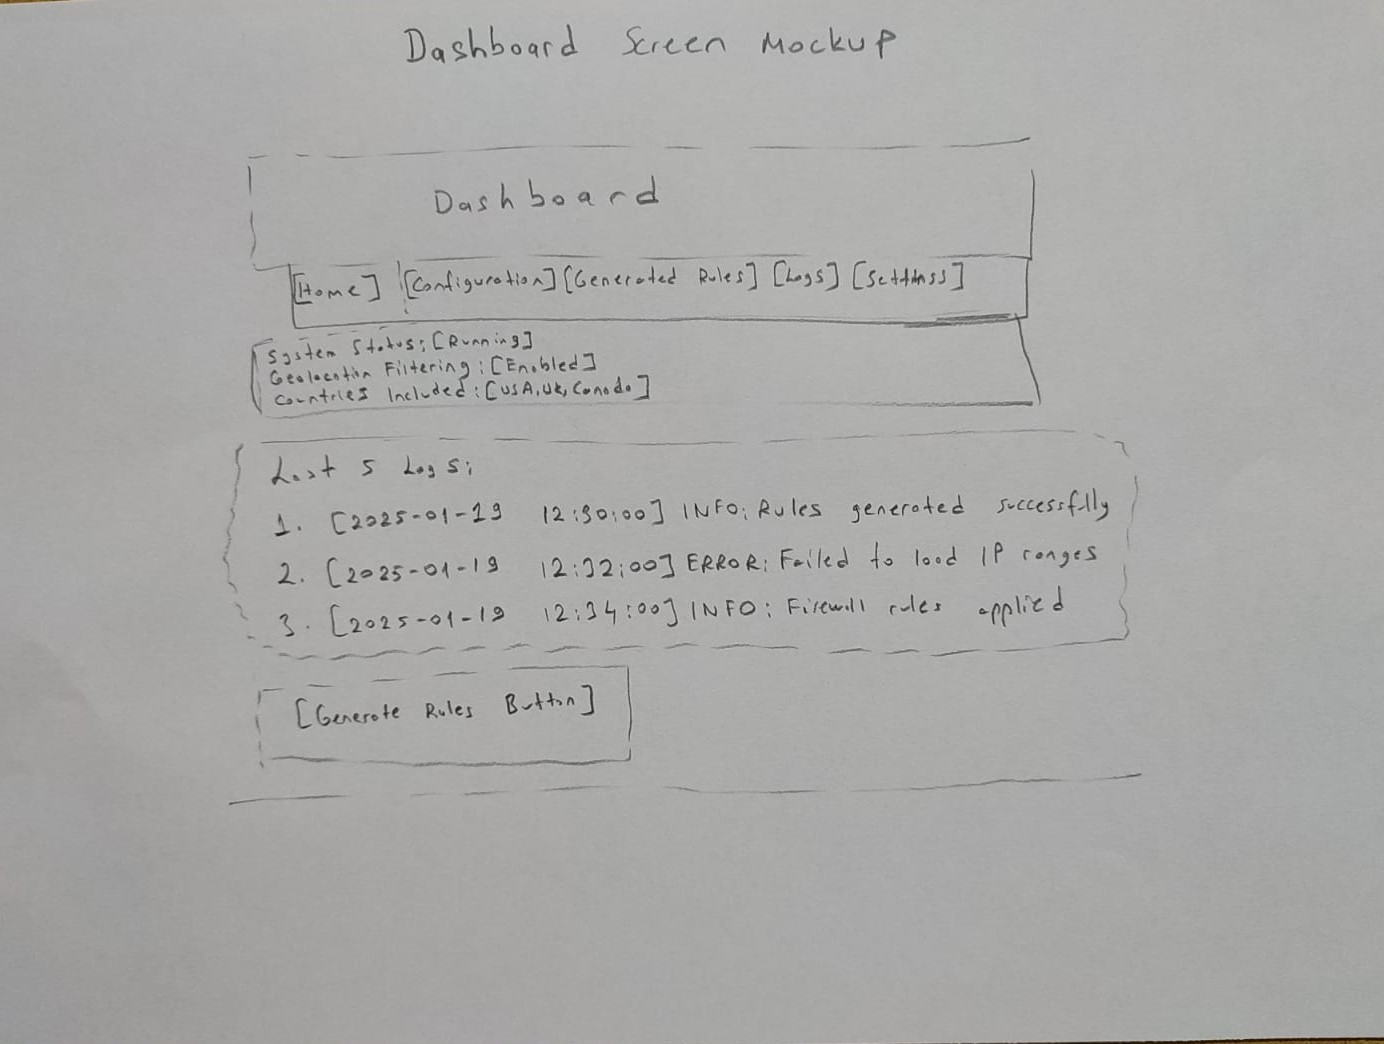 Dashboard Screen Mockup
Dashboard
[Home] [Configuration] [Generated Rules] [Logs] [Settings]
System Status: [Running]
Geolocation Filtering: [Enabled]
Countries Included: [USA, UK, Canada]
Last 5 Logs:
1. [2025-01-19 12:30:00] INFO: Rules generated successflly
2. [2025-01-19 12:32:00] ERROR: Failed to load IP ranges
3. [2025-01-19 12:34:00] INFO: Firewall rules applied
[Generate Rules Button]